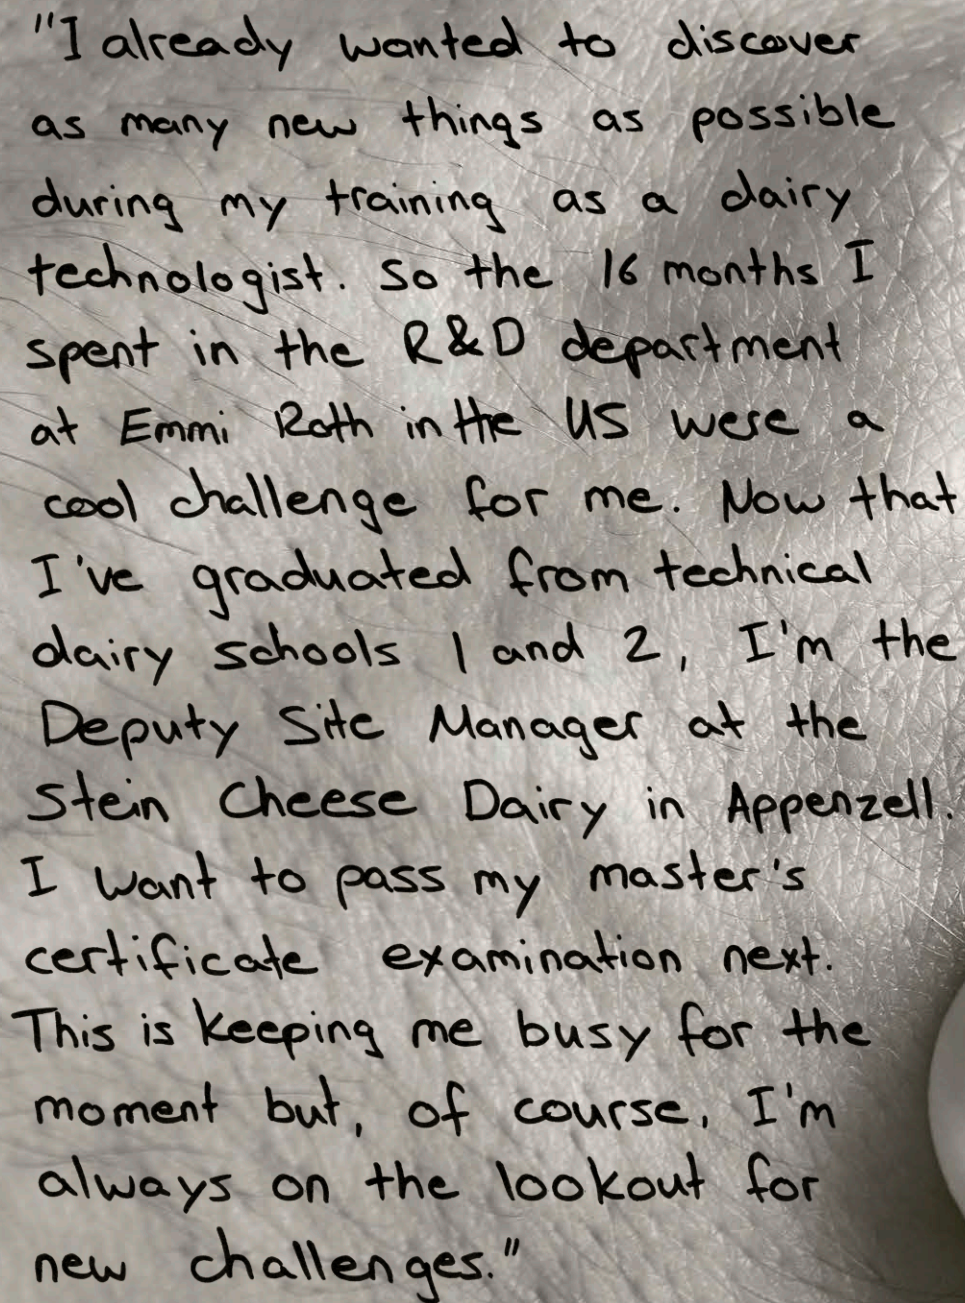 "I already wanted to discover
as many new things as possible
during my training as a dairy
technologist. So the 16 months I
spent in the R&D department
at Emmi Roth in the US were a
cool challenge for me. Now that
I've graduated from technical
dairy schools 1 and 2, I'm the
Deputy Site Manager at the
Stein Cheese Dairy in Appenzell.
I want to pass my master's
certificate examination next.
This is keeping me busy for the
moment but, of course, I'm
always on the lookout for
new challenges."